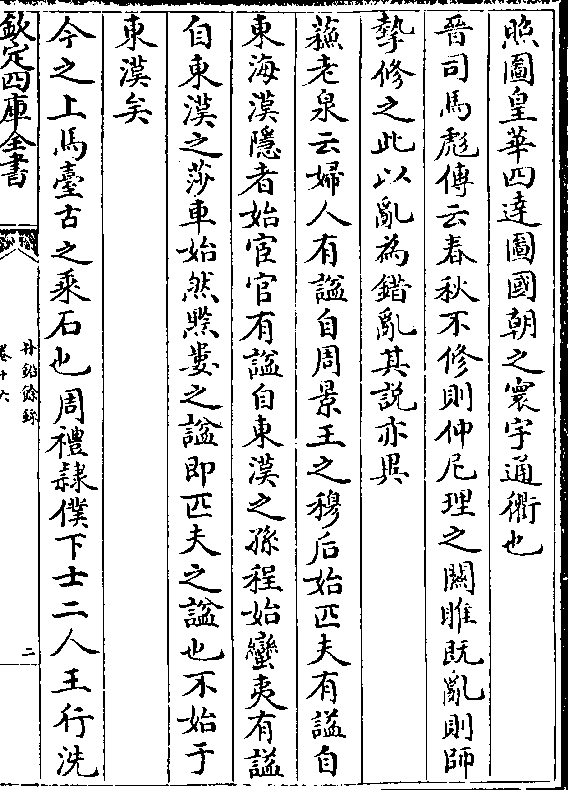 照圖皇華四達圖國朝之寰宇通衢也
晉司馬彪傳云春秋不修則仲尼理之關雎既亂則師
摯修之此以亂為錯亂其説亦異
蘓老泉云婦人有謚自周景王之穆后始匹夫有謚自
東海漠隱者始宦官有謚自東漢之孫程始蠻夷有謚
自東漢之莎車始然黔婁之謚即匹夫之謚也不始于
東漢矣
今之上馬臺古之乘石也周禮隷僕下士二人王行洗
欽定四庫全書
丹鉛餘録
卷十六
二